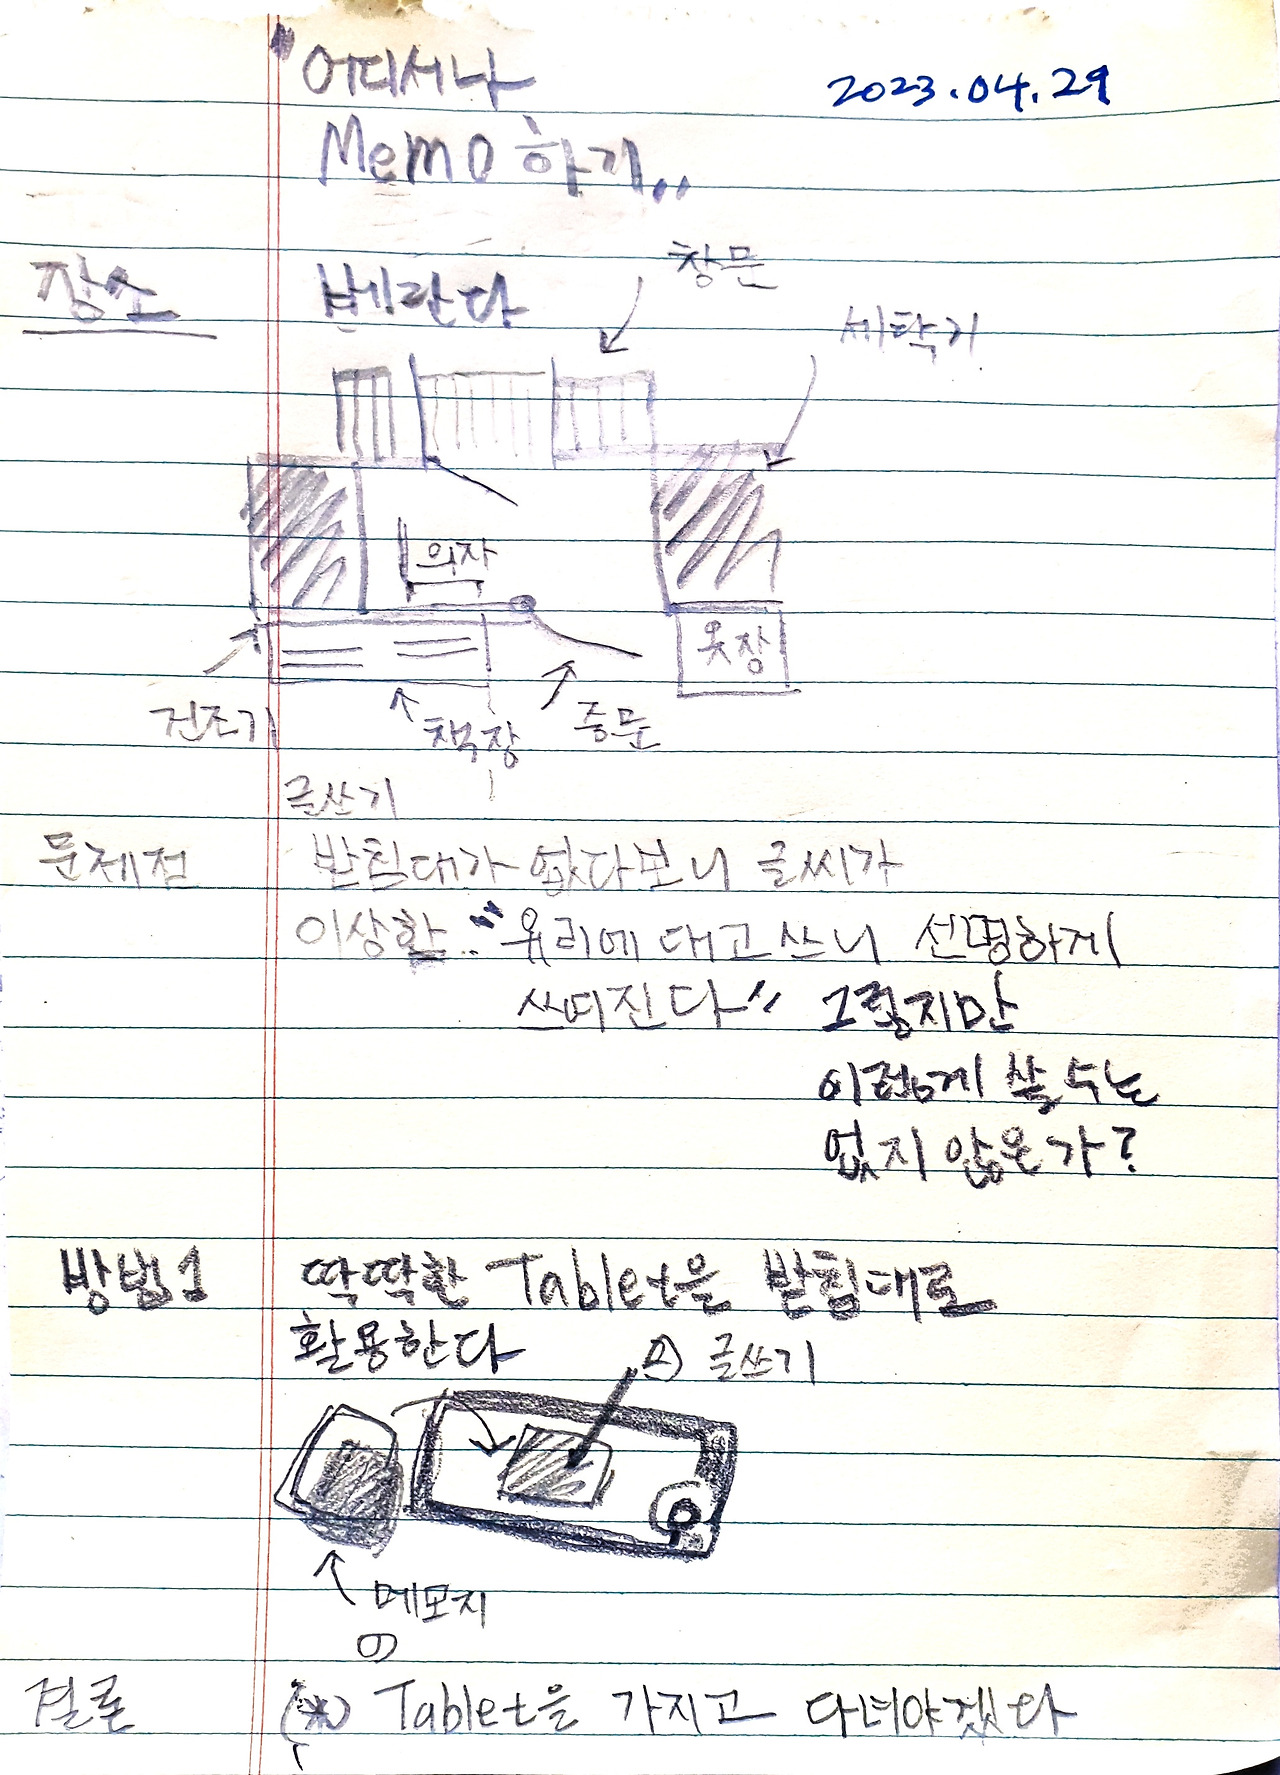 "어디서나
2023.04.29
Memo 하기..
장소
베란다
창문
세탁기
의자
옷장
건조기
책장
중문
글쓰기
문제점 받침대가 없다보니 글씨가
이상함.. "유리에 대고 쓰니 선명하게
쓰여진다" 그렇지만
이렇게 쓸 수는
없지 않은가?
방법1 딱딱한 Tablet을 받침대로
활용한다
② 글쓰기
메모지
①
결론 (*) Tablet을 가지고 다녀야겠다